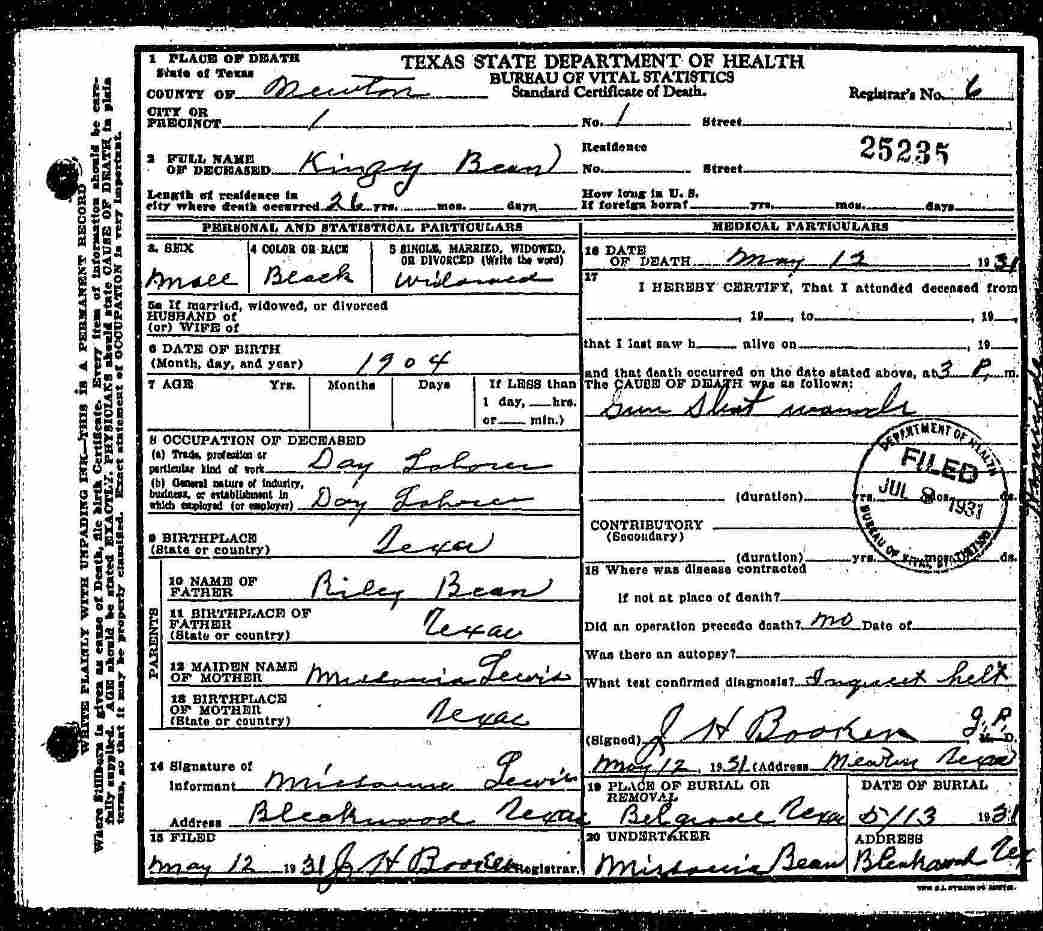 TEXAS STATE DEPARTMENT OF HEALTH
BUREAU OF VITAL STATISTICS
Standard Certificate of Death.
1 PLACE OF DEATH
State of Texas
COUNTY OF Newton
Registrar's No. 6
CITY OR
PRECINCT 1 No. 1 Street
Residence
2 FULL NAME
OF DECEASED Kingy Bean No. Street
25235
Length of residence in
city where death occurred 26 yrs. mos. days
How long in U. S.
If foreign born? yrs. mos. days
PERSONAL AND STATISTICAL PARTICULARS
3. SEX
Male
4 COLOR OR RACE
Black
5 SINGLE, MARRIED, WIDOWED,
OR DIVORCED (Write the word)
Widowed
5a If married, widowed, or divorced
HUSBAND of
(or) WIFE of
6 DATE OF BIRTH
(Month, day, and year) 1904
7 AGE Yrs. Months Days
If LESS than
1 day, hrs.
or min.)
8 OCCUPATION OF DECEASED
(a) Trade, profession or
particular kind of work Day Laborer
(b) General nature of industry,
business, or establishment in
which employed (or employer) Day Laborer
9 BIRTHPLACE
(State or country) Texas
PARENTS
10 NAME OF
FATHER Riley Bean
11 BIRTHPLACE OF
FATHER
(State or country) Texas
12 MAIDEN NAME
OF MOTHER Missouria Lewis
13 BIRTHPLACE
OF MOTHER
(State or country) Texas
14 Signature of
Informant Lewis
Address Bleakwood Texas
15 FILED
May 12 1931 J H Booker Registrar.
MEDICAL PARTICULARS
16 DATE
OF DEATH May 12 1931
17
I HEREBY CERTIFY, That I attended deceased from
, 19 , to , 19 ,
that I last saw h alive on , 19
and that death occurred on the date stated above, at 3 P. m.
The CAUSE OF DEATH was as follows:
Gun Shot wounds
DEPARTMENT OF HEALTH
FILED
JUL 8 1931
BUREAU OF VITAL STATISTICS
Homicide
(duration) yrs. mos. ds.
CONTRIBUTORY
(Secondary)
(duration) yrs. mos. ds.
18 Where was disease contracted
If not at place of death?
Did an operation precede death? no Date of
Was there an autopsy?
What test confirmed diagnosis? Inquest helt
(Signed) J H Booker J. P.
M. D.
May 12, 1931 (Address Newton Texas
19 PLACE OF BURIAL OR
REMOVAL
Belgrade Texas
DATE OF BURIAL
5/13 1931
20 UNDERTAKER
Missouria Bean
ADDRESS
Bleakwood Tex
WRITE PLAINLY WITH UNFADING INK—THIS IS A PERMANENT RECORD
Where Stillborn is given as cause of Death, file birth Certificate. Every item of information should be care-
fully supplied. AGE should be stated EXACTLY. PHYSICIANS should state CAUSE OF DEATH in plain
terms, so that it may be properly classified. Exact statement of OCCUPATION is very important.